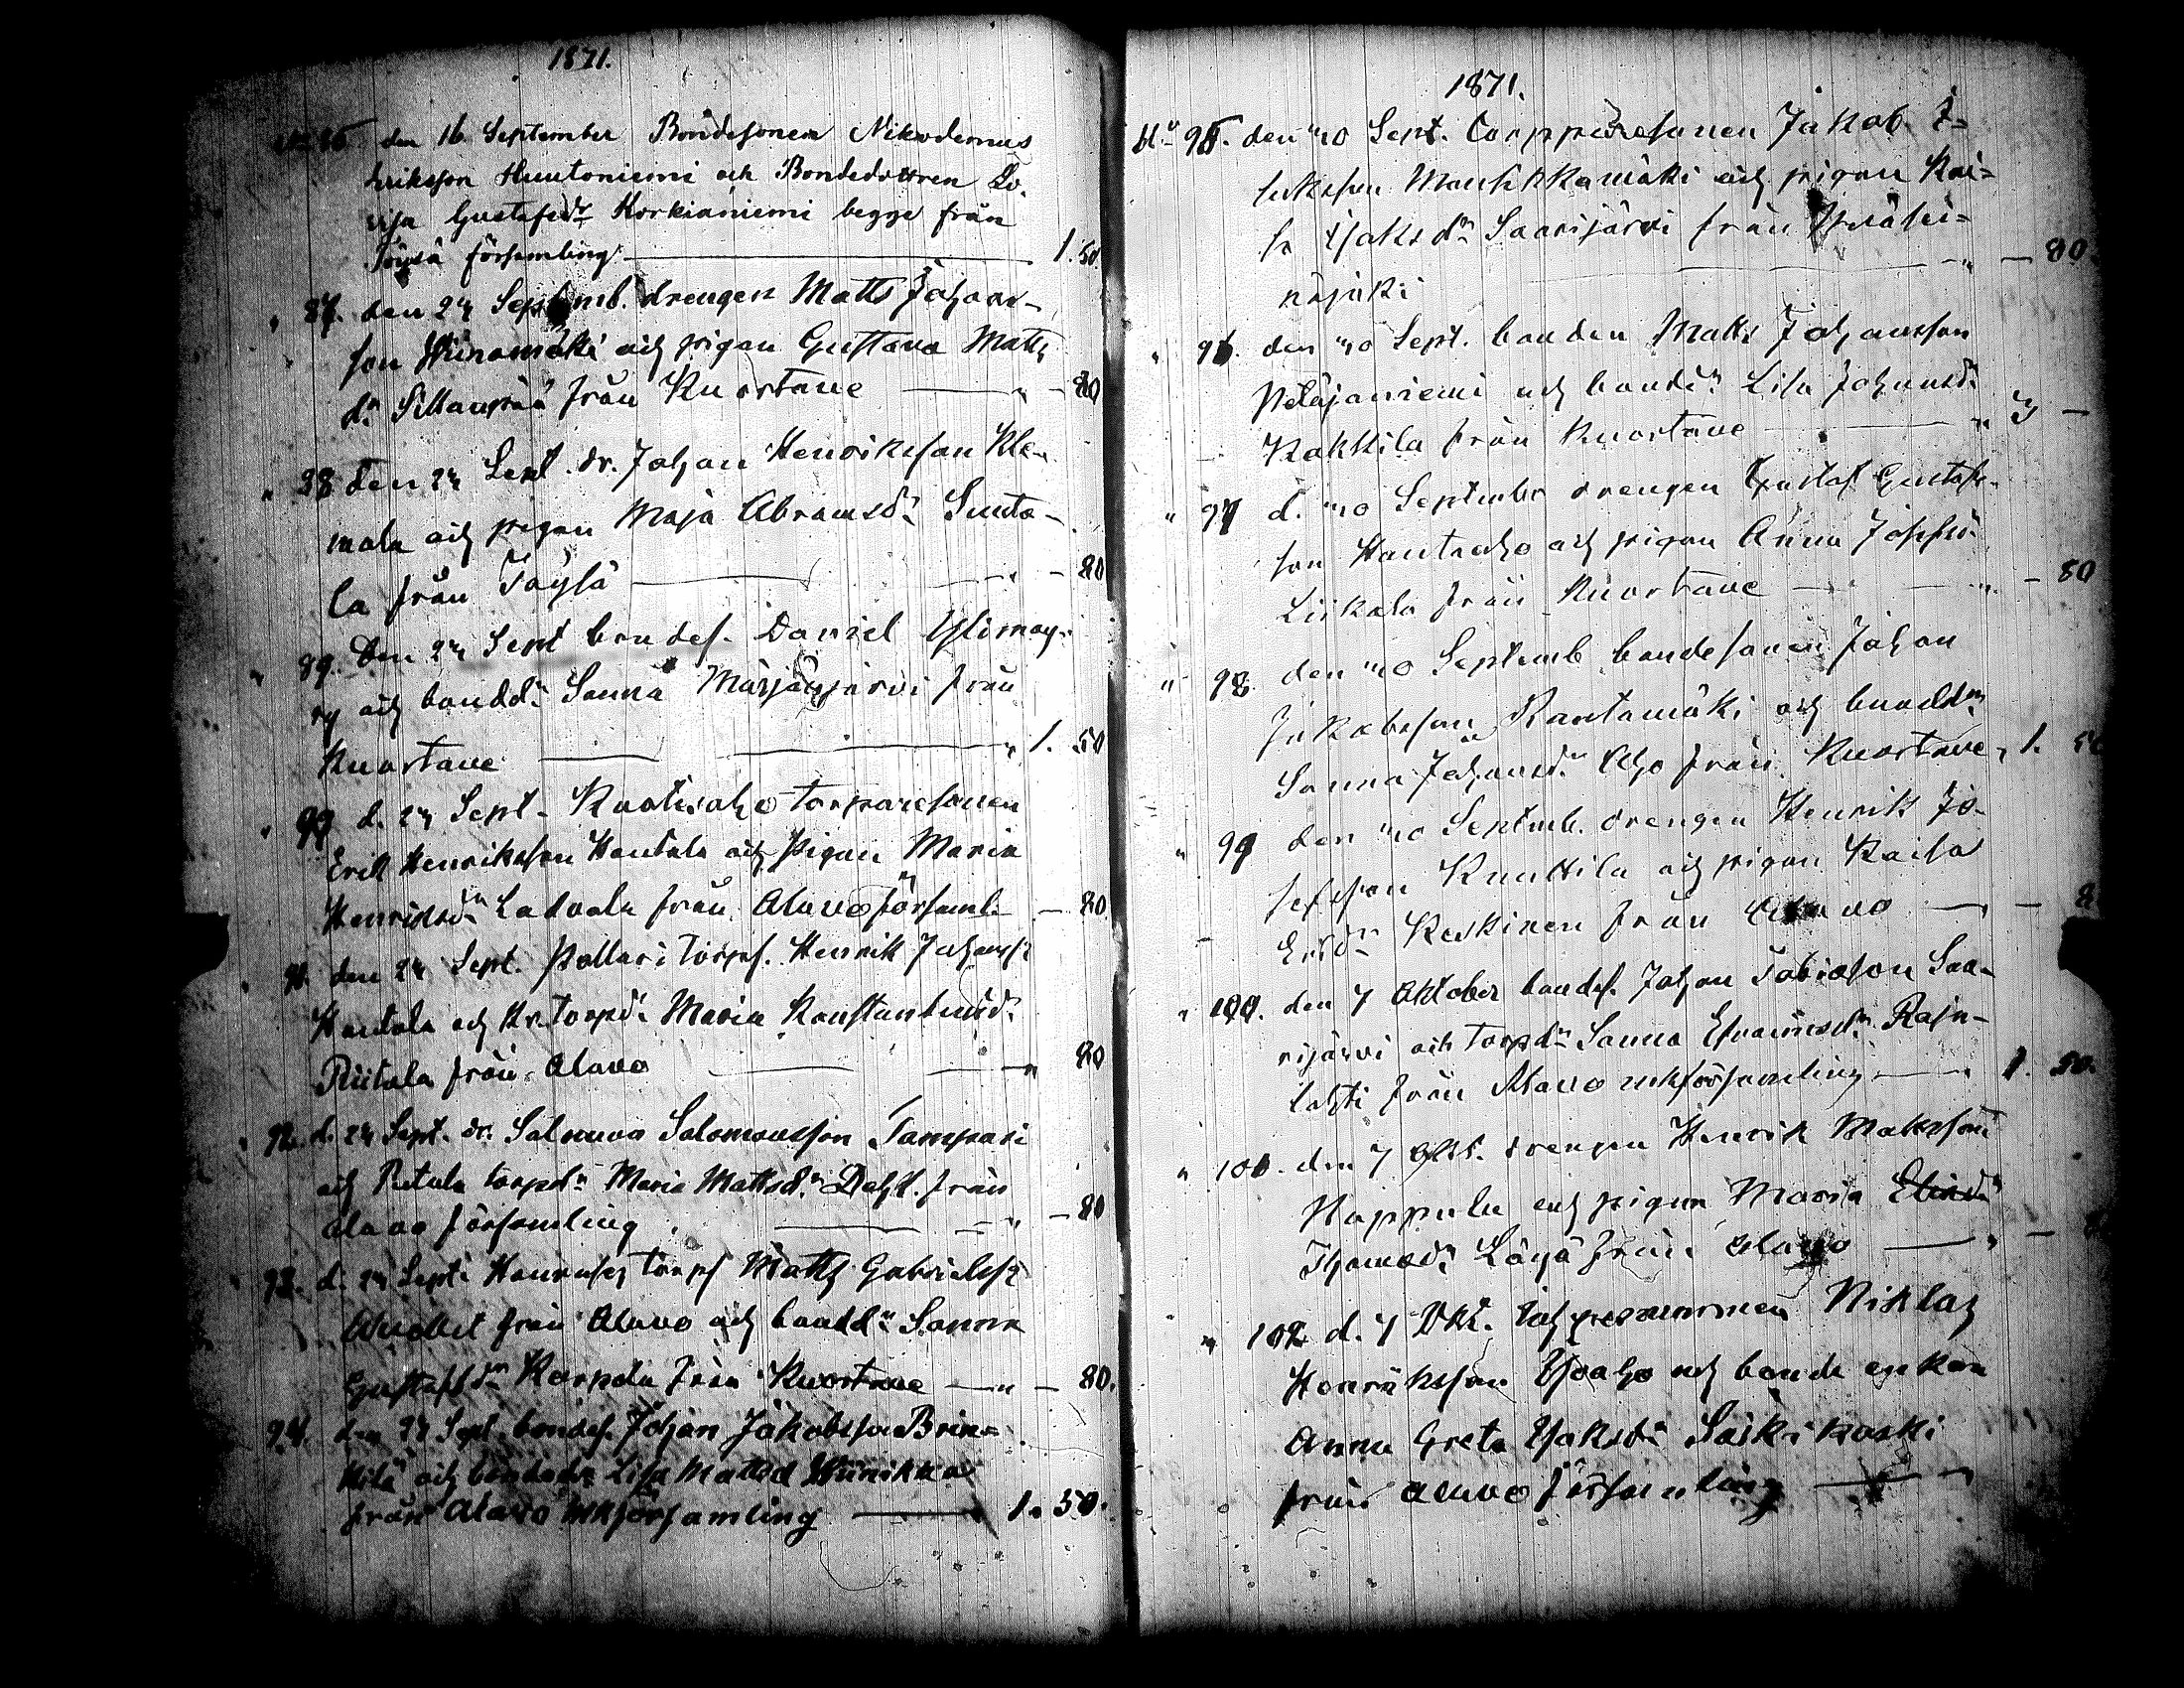 1871.
No 86. den 16 September Bondesonen Nikodemus
Eriksson Huutoniemi och Bondedottren Lo-
visa Gustafsdr Korkianiemi begge från
Töysä församling 1. 50.
" 87. den 24 Septemb. drengen Matts Johans-
son och pigan Gustava Matts
dr Sillanpää från Kuortane " - 80
" 88 den 24 Sept. dr. Johan Henriksson Kle-
mola och pigan Maja Abramsdr Sunta-
la från Töysä " - 80
" 89. Den 24 Sept bondes. Daniel Ylimäy-
ry och bondd. Sanna Marjanjärvi från
Kuortane " 1. 50
" 90 d. 24 Sept. torparesonen
Erik Henriksson Hautala och Pigan Maria
Henriksdn Latvala från Alavo församl. - 80
" 91. den 24 Sept. Pollari torps. Henrik Johanss
Hautala och torpd. Maria Konstantinsd.
Ritola från Alavo " 80
" 92. d. 24 Sept. dr. Salomon Salomonsson Tampari
och Ritala torpdn Maria Mattsdn Dahl. från
Alavo församling " - 80
" 93. d. 24 Sept. torps Matts Gabrielss
från Alavo och bondd. Sanna
Gustafsdn Karpela från Kuortane " - 80.
" 94. den 24 Sept. bondes. Johan Jakobsson Brin-
kilä och bondedr Lisa Mattsd Wiinikka
från Alavo mkförsamling 1. 50.
1871.
No 95. den 40 Sept. Torpparesonen Jakob I-
saksson Mansikkamäki och pigan Kai-
sa Isaksdn Saarijärvi från Peräsei-
näjoki " - 80.
" 96. den 40 Sept. bonden Matts Johansson
Petäjäniemi och bondd. Lisa Johansd.
Kakkila från Kuortane " 3 -
" 97 d. 40 September drengen Gustaf Gustafs-
son Hautaaho och pigan Anna Josefsd.
Liikala från Kuortane " - 80
" 98 den 40 Septemb bondesonen Johan
Jakobsson Rantamäki och bonddn
Sanna Johansdn Aho från Kuortane, 1. 50
" 99 den 40 Septemb. drengen Henrik Jo-
sefsson Knuttila och pigan Kaisa
Ersdn Keskinen från Alavo - 8
" 100. den 7 Oktober bondes. Johan Tobiasson Saa-
rijärvi och torpdn Sanna Efraimsdn Raja-
lahti från Alavo mkförsamling 1. 50.
" 101. den 7 Okt. drengen Henrik Mattsson
Nappula och pigan Maria
Thomasdn Löyä från Alavo " -
" 102 d. 7 Okt. Niklas
Henriksson Ysoaho och bonde enkan
Anna Greta Isaksdn Säikikoski
från Alavo församling "